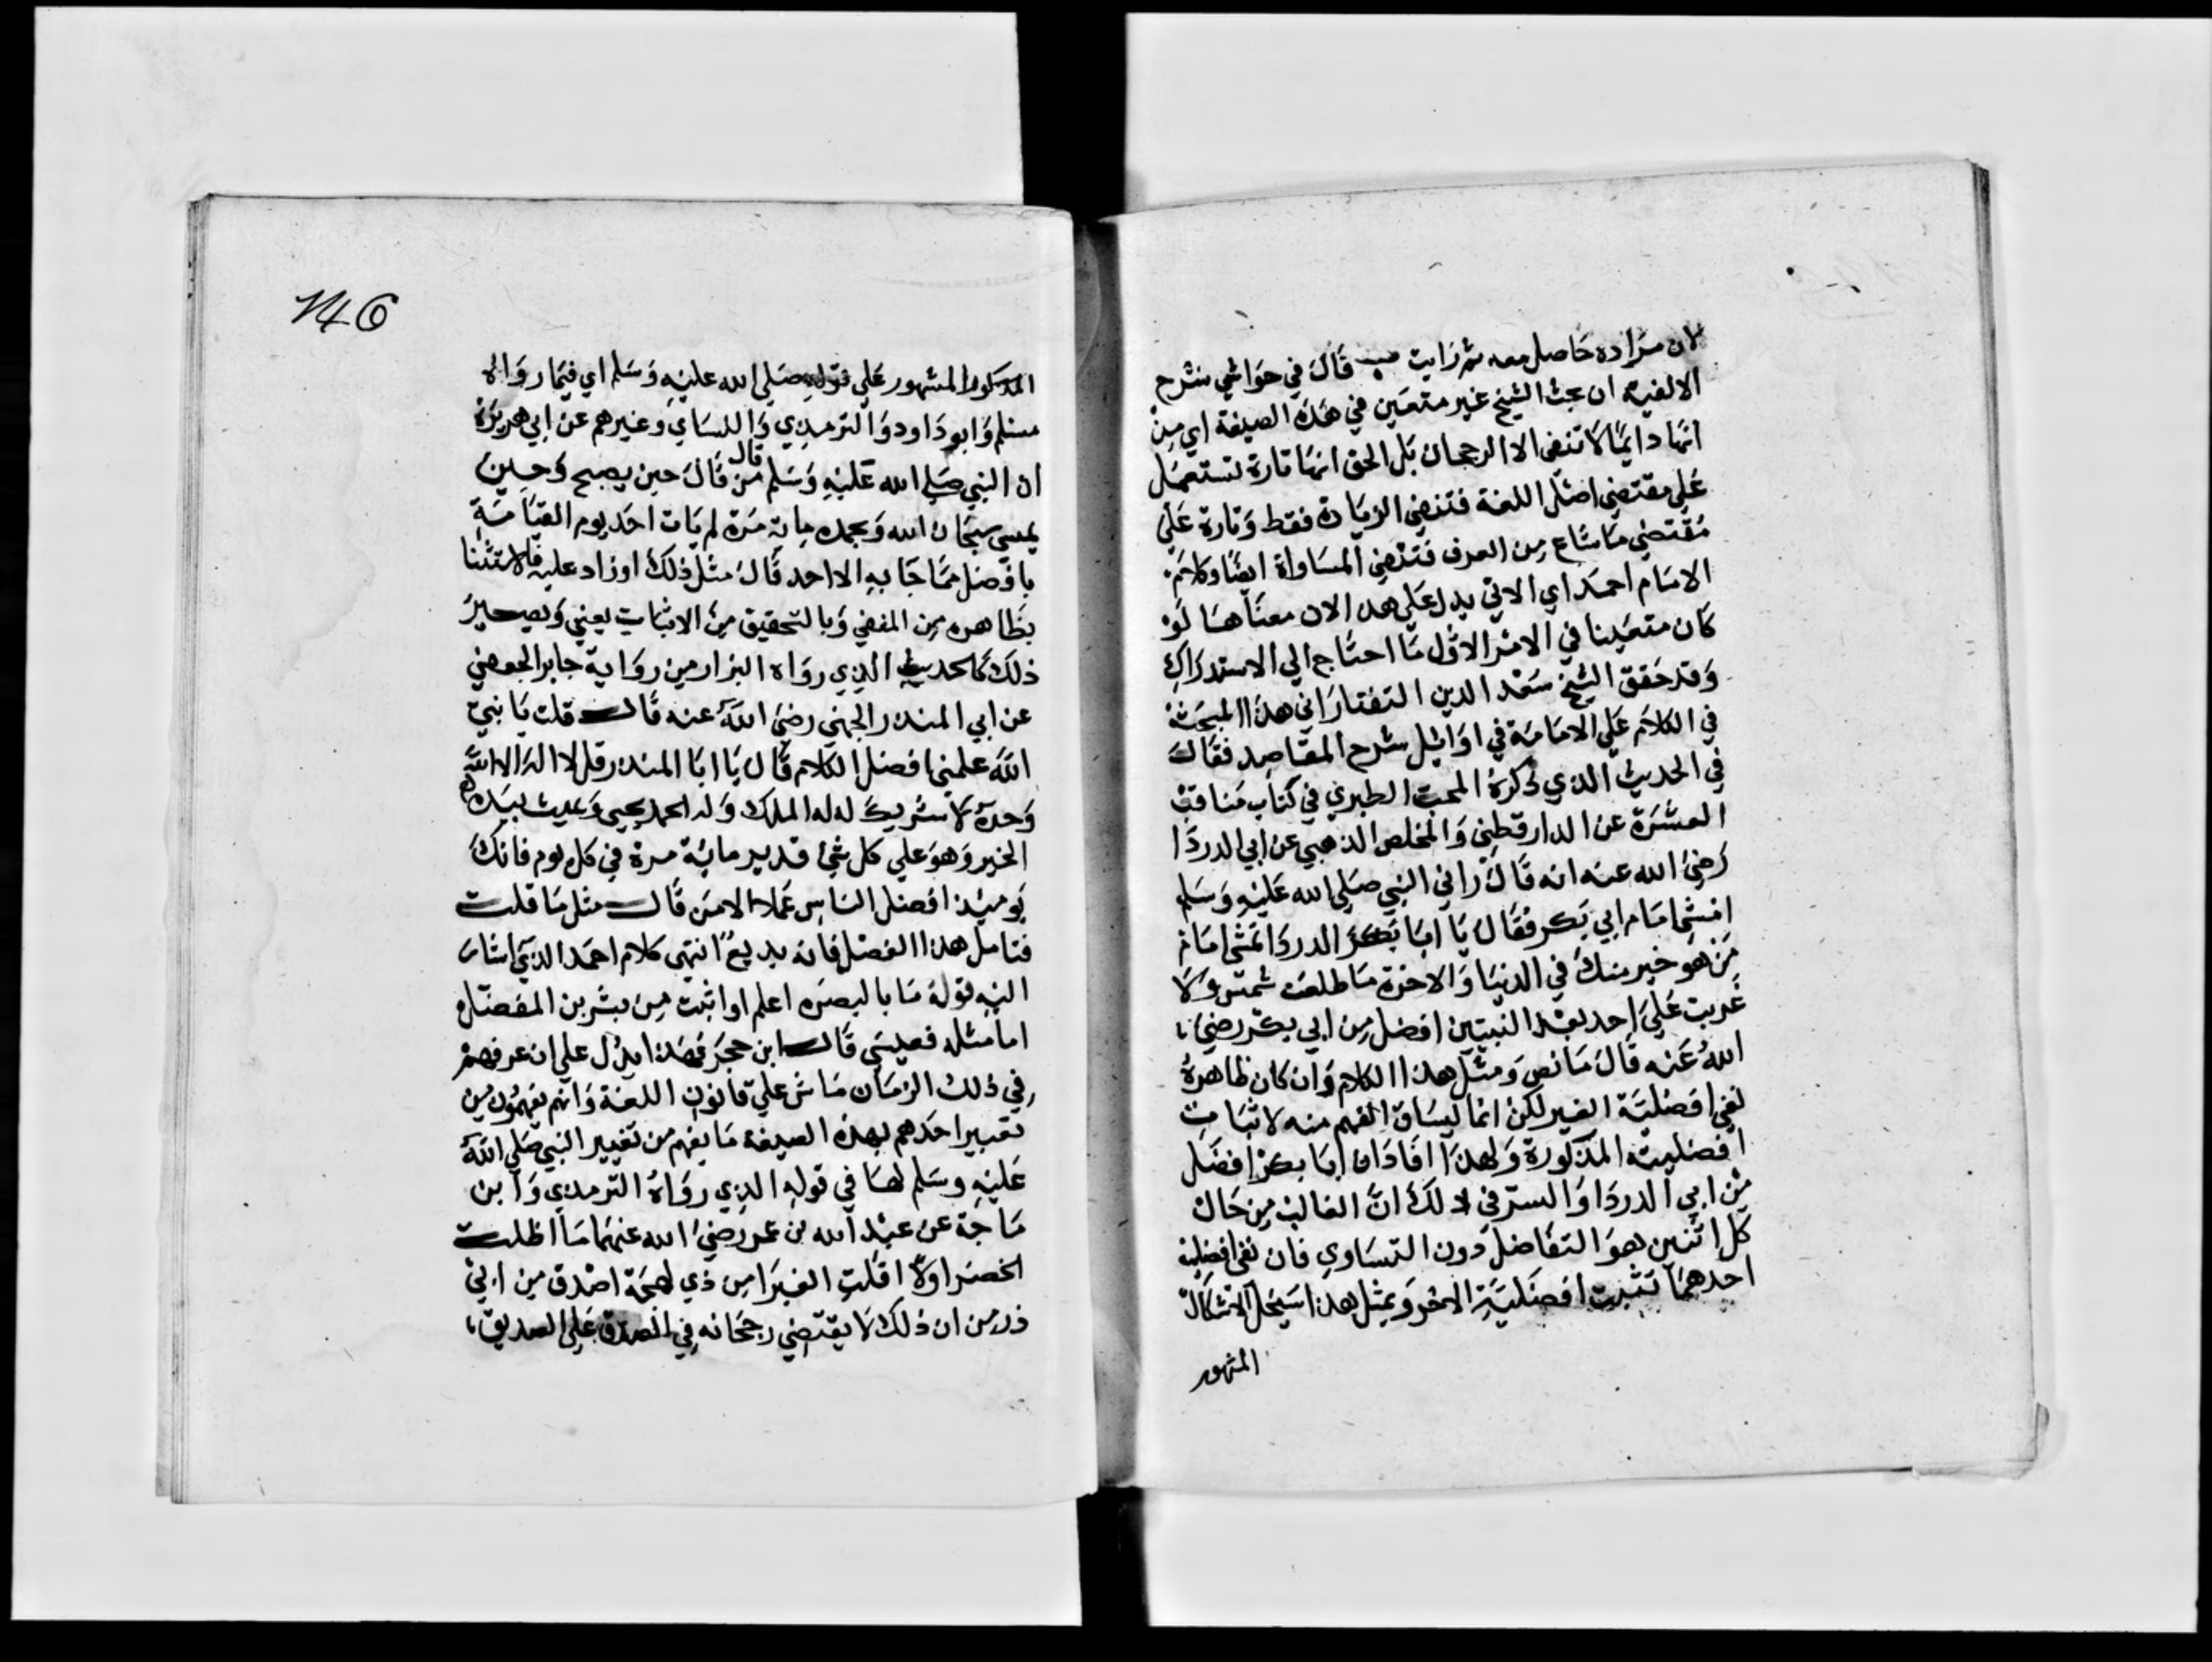 لان مراده حاصل معه ثم رايت قال في حواشي شرح
الالفية ان بحث الشيخ غير متعين في هذه الصيغة اي من
انها دايما لا تنفى الا الرجحان بل الحق انها تارة تستعمل
على مقتضى اصل اللغة فتنفي الزيادة فقط وتارة على
مقتضى ما شاع من العرف فتنفي المساواة ايضا وكلام
الامام احمد اي الاتي يدل على هذا لان معناها لو
كان متعينا في الامر الاول ما احتاج الي الاستدراك
وقد حقق الشيخ سعد الدين التفتازاني هذا المبحث
في الكلام على الامامة في اوائل شرح المقاصد فقال
في الحديث الذي ذكره المحب الطبري في كتاب مناقب
العشرة عن الدارقطني والمخلص الذهبي عن ابي الدردا
رضي الله عنه انه قال راني النبي صلي الله عليه وسلم
امشي امام ابي بكر فقال يا ابا بكر الدردا تمشي امام
من هو خير منك في الدنيا والاخرة ما طلعت شمس ولا
غربت على احد بعد النبيين افضل من ابي بكر رضي
الله عنه قال ما نص ومثل هذا الكلام وان كان ظاهره
نفي افضلية الغير لكن انما يساق الفهم منه لاثبات
افضلية المذكورة ولهذا افاد ان ابا بكر افضل
من ابي الدردا والسر في ذلك ان الغالب من حال
كل اثنين هو التفاضل دون التساوي فان نفى افضلية
احدهما تثبت افضلية الاخر وبمثل هذا ينحل الاشكال
المشهور
146
المذكور المشهور على قوله صلى الله عليه وسلم اي فيما رواه
مسلم وابو داود والترمذي والنساي وغيرهم عن ابي هريرة
قال
ان النبي صلي الله عليه وسلم من قال حين يصبح وحين
يمسي سبحان الله وبحمده مائة مرة لم يات احد يوم القيامة
بافضل مما جا به الا احد قال مثل ذلك او زاد عليه فالاستثنا
بظاهره من المنفي وبالتحقيق من الاثبات يعني ويصير
ذلك كالحديث الذي رواه البزار من رواية جابر الجعفي
عن ابي المنذر الجهني رضي الله عنه قال قلت يا نبي
الله علمني افضل الكلام قال يا ابا المنذر قل لا اله الا الله
وحده لا شريك له له الملك وله الحمد يحيى ويميت بيده
الخير وهو علي كل شئ قدير مائة مرة في كل يوم فانك
يوميذ افضل الناس عملا الا من قال مثل ما قلت
فتامل هذا الفصل فانه بديع انتهى كلام احمد الذي اشار
اليه قوله ما بالبصره اعلم او اثبت من بشر بن المفضل
اما مثله فعيسى قال ابن حجر فهذا يدل علي ان عرفهم
في ذلك الزمان ماش علي قانون اللغة وانهم يفهمون من
تعبير احدهم بهذه الصيغة ما يفهم من تعبير النبي صلي الله
عليه وسلم لها في قوله الذي رواه الترمذي وابن
ماجة عن عبد الله بن عمر رضي الله عنهما ما اظلت
الخضرا ولا اقلت الغبرا من ذي لهجة اصدق من ابي
ذر من ان ذلك لا يقتضي رجحانه في الصدق على الصديق